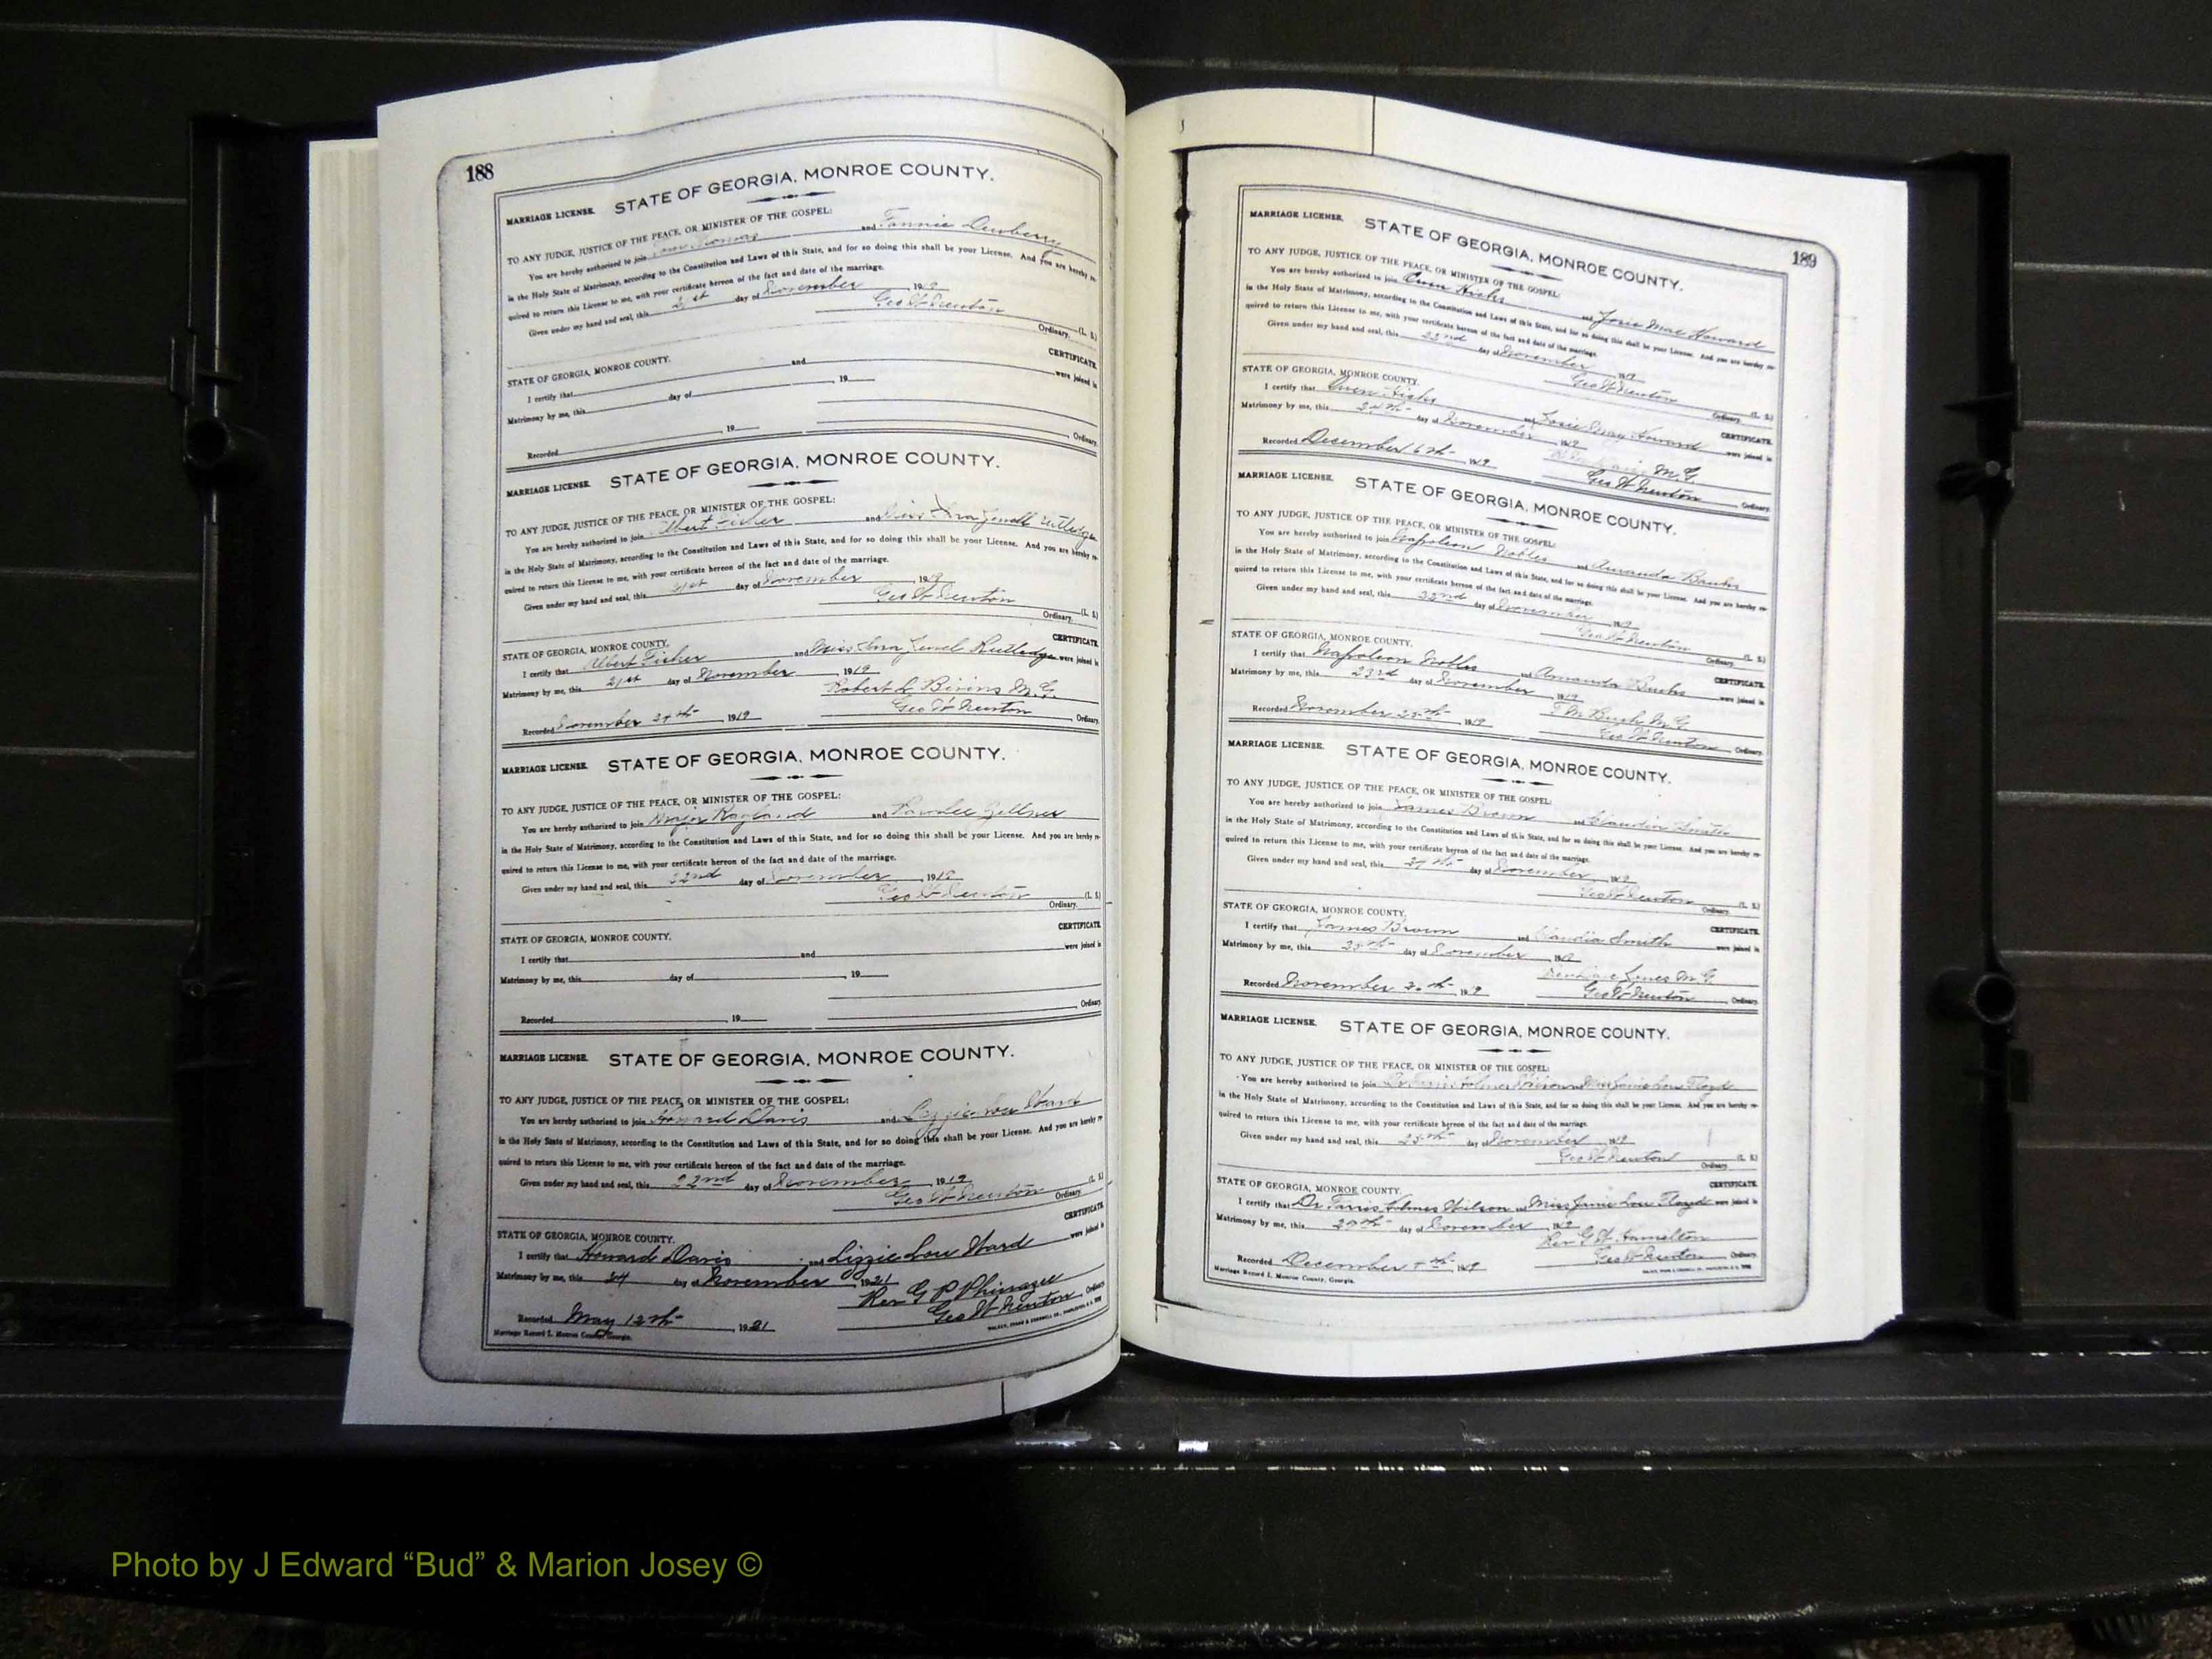 188
STATE OF GEORGIA, MONROE COUNTY.
MARRIAGE LICENSE.
TO ANY JUDGE, JUSTICE OF THE PEACE, OR MINISTER OF THE GOSPEL:
You are hereby authorized to join Thomas and Fannie Dewberry
in the Holy State of Matrimony, according to the Constitution and Laws of this State, and for so doing this shall be your License. And you are hereby re-
quired to return this License to me, with your certificate hereon of the fact and date of the marriage.
Given under my hand and seal, this 21st day of November, 1919
Geo W Newton (L. S.)
Ordinary.
CERTIFICATE.
STATE OF GEORGIA, MONROE COUNTY.
I certify that and were joined in
Matrimony by me, this day of , 19
Recorded , 19 Ordinary.
MARRIAGE LICENSE. STATE OF GEORGIA, MONROE COUNTY.
TO ANY JUDGE, JUSTICE OF THE PEACE, OR MINISTER OF THE GOSPEL:
You are hereby authorized to join Albert Fisher and Miss Ira Jewell Rutledge
in the Holy State of Matrimony, according to the Constitution and Laws of this State, and for so doing this shall be your License. And you are hereby re-
quired to return this License to me, with your certificate hereon of the fact and date of the marriage.
Given under my hand and seal, this 21st day of November, 1919
Geo W Newton (L. S.)
Ordinary.
CERTIFICATE.
STATE OF GEORGIA, MONROE COUNTY.
I certify that Albert Fisher and Miss Ira Jewel Rutledge were joined in
Matrimony by me, this 21st day of November, 1919
Robert L Bivins M.G.
Recorded November 29th, 1919 Geo W Newton, Ordinary.
MARRIAGE LICENSE. STATE OF GEORGIA, MONROE COUNTY.
TO ANY JUDGE, JUSTICE OF THE PEACE, OR MINISTER OF THE GOSPEL:
You are hereby authorized to join Major Ragland and
in the Holy State of Matrimony, according to the Constitution and Laws of this State, and for so doing this shall be your License. And you are hereby re-
quired to return this License to me, with your certificate hereon of the fact and date of the marriage.
Given under my hand and seal, this 22nd day of November, 1919
Geo W Newton (L. S.)
Ordinary.
CERTIFICATE.
STATE OF GEORGIA, MONROE COUNTY.
I certify that and were joined in
Matrimony by me, this day of , 19
Recorded , 19 Ordinary.
MARRIAGE LICENSE. STATE OF GEORGIA, MONROE COUNTY.
TO ANY JUDGE, JUSTICE OF THE PEACE, OR MINISTER OF THE GOSPEL:
You are hereby authorized to join Howard Davis and Lizzie Lou Ward
in the Holy State of Matrimony, according to the Constitution and Laws of this State, and for so doing this shall be your License. And you are hereby re-
quired to return this License to me, with your certificate hereon of the fact and date of the marriage.
Given under my hand and seal, this 22nd day of November, 1919
Geo W Newton (L. S.)
Ordinary.
CERTIFICATE.
STATE OF GEORGIA, MONROE COUNTY.
I certify that Howard Davis and Lizzie Lou Ward were joined in
Matrimony by me, this 24 day of November
Rev G P Phinazee
Recorded May 12th, 1921 Geo W Newton, Ordinary.
Marriage Record I. Monroe County, Georgia.
189
MARRIAGE LICENSE. STATE OF GEORGIA, MONROE COUNTY.
TO ANY JUDGE, JUSTICE OF THE PEACE, OR MINISTER OF THE GOSPEL:
You are hereby authorized to join Owen Hicks and Josie Mae Howard
in the Holy State of Matrimony, according to the Constitution and Laws of this State, and for so doing this shall be your License. And you are hereby re-
quired to return this License to me, with your certificate hereon of the fact and date of the marriage.
Given under my hand and seal, this 22nd day of November, 1919
Geo W Newton (L. S.)
Ordinary.
CERTIFICATE.
STATE OF GEORGIA, MONROE COUNTY.
I certify that Owen and Josie May Howard were joined in
Matrimony by me, this day of November, 1919
M.G.
Recorded December 6th, 1919 Geo W Newton Ordinary.
MARRIAGE LICENSE. STATE OF GEORGIA, MONROE COUNTY.
TO ANY JUDGE, JUSTICE OF THE PEACE, OR MINISTER OF THE GOSPEL:
You are hereby authorized to join Napoleon Nobles and Amanda Banks
in the Holy State of Matrimony, according to the Constitution and Laws of this State, and for so doing this shall be your License. And you are hereby re-
quired to return this License to me, with your certificate hereon of the fact and date of the marriage.
Given under my hand and seal, this 22nd day of November, 1919
Geo W Newton (L. S.)
Ordinary.
CERTIFICATE.
STATE OF GEORGIA, MONROE COUNTY.
I certify that Napoleon Nobles and Amanda were joined in
Matrimony by me, this 23rd day of November, 1919
M.G.
Recorded November 25th, 1919 Geo W Newton, Ordinary.
MARRIAGE LICENSE. STATE OF GEORGIA, MONROE COUNTY.
TO ANY JUDGE, JUSTICE OF THE PEACE, OR MINISTER OF THE GOSPEL:
You are hereby authorized to join James Brown and Claudia Smith
in the Holy State of Matrimony, according to the Constitution and Laws of this State, and for so doing this shall be your License. And you are hereby re-
quired to return this License to me, with your certificate hereon of the fact and date of the marriage.
Given under my hand and seal, this day of November, 1919
Geo W Newton (L. S.)
Ordinary.
CERTIFICATE.
STATE OF GEORGIA, MONROE COUNTY.
I certify that James Brown and Claudia Smith were joined in
Matrimony by me, this 25th day of November, 1919
M G
Recorded November 1919 Geo W Newton, Ordinary.
MARRIAGE LICENSE. STATE OF GEORGIA, MONROE COUNTY.
TO ANY JUDGE, JUSTICE OF THE PEACE, OR MINISTER OF THE GOSPEL:
You are hereby authorized to join Dr Farris Holmes Wilson and Miss Janie Lou Floyd
in the Holy State of Matrimony, according to the Constitution and Laws of this State, and for so doing this shall be your License. And you are hereby re-
quired to return this License to me, with your certificate hereon of the fact and date of the marriage.
Given under my hand and seal, this 25th day of November, 1919
Geo W Newton (L. S.)
Ordinary.
CERTIFICATE.
STATE OF GEORGIA, MONROE COUNTY.
I certify that Dr Farris Holmes Wilson and Miss Janie Lou Floyd were joined in
Matrimony by me, this day of November, 1919
Rev G W Hamelton
Recorded December 1919 Geo W Newton, Ordinary.
Marriage Record I. Monroe County, Georgia.
Photo by J Edward “Bud” & Marion Josey ©